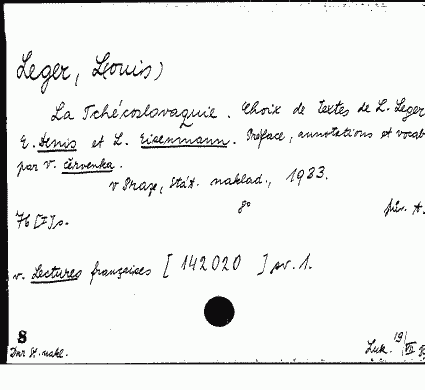 Leger, Louis)
La Tchécoslovaquie. Choix de textes de L. Leger
E. Denis et L. Eisenmann. Préface, annotations et vocab
par V. Červenka.
v Praze, Stát. naklad., 1933.
8°
přív. A.
76 [I] s.
v. Lectures françaises [142020 ] sv. 1.
8
Dar St. nakl.
Luk. 19/VII